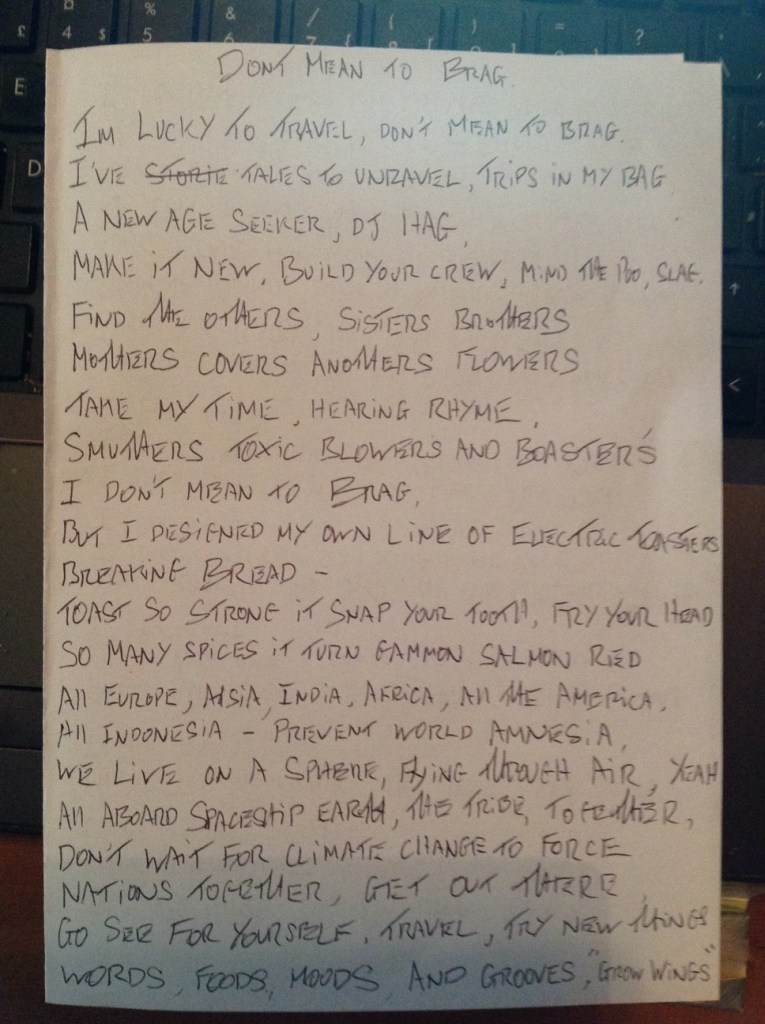 DONT MEAN TO BRAG.
IM LUCKY TO TRAVEL, DON'T MEAN TO BRAG.
I'VE STORIE TALES TO UNRAVEL, TRIPS IN MY BAG
A NEW AGE SEEKER, DJ HAG,
MAKE IT NEW, BUILD YOUR CREW, MIND THE POO, SLAG.
FIND THE OTHERS, SISTERS BROTHERS
MOTHERS COVERS ANOTHERS FLOWERS
TAKE MY TIME, HEARING RHYME,
SMUTHERS TOXIC BLOWERS AND BOASTER'S
I DON'T MEAN TO BRAG,
BUT I DESIGNED MY OWN LINE OF ELECTRIC TOASTERS
BREAKING BREAD -
TOAST SO STRONG IT SNAP YOUR TOOTH, FRY YOUR HEAD
SO MANY SPICES IT TURN GAMMON SALMON RED
All EUROPE, AISIA, INDIA, AFRICA, All THE AMERICA,
All INDONESIA - PREVENT WORLD AMNESIA,
WE LIVE ON A SPHERE, FlyING THROUGH AIR, YEAH
All ABOARD SPACESHIP EARTH, THE TRIBE, TOGETHER,
DON'T WAIT FOR CLIMATE CHANGE TO FORCE
NATIONS TOGETHER, GET OUT THERE,
GO SEE FOR YOURSELF, TRAVEL, TRY NEW THINGS
WORDS, FOODS, MOODS, AND GROOVES, "GROW WINGS"
£ 4 $ % 5 & 6 / 7 { ( ) = ?
E
D
<